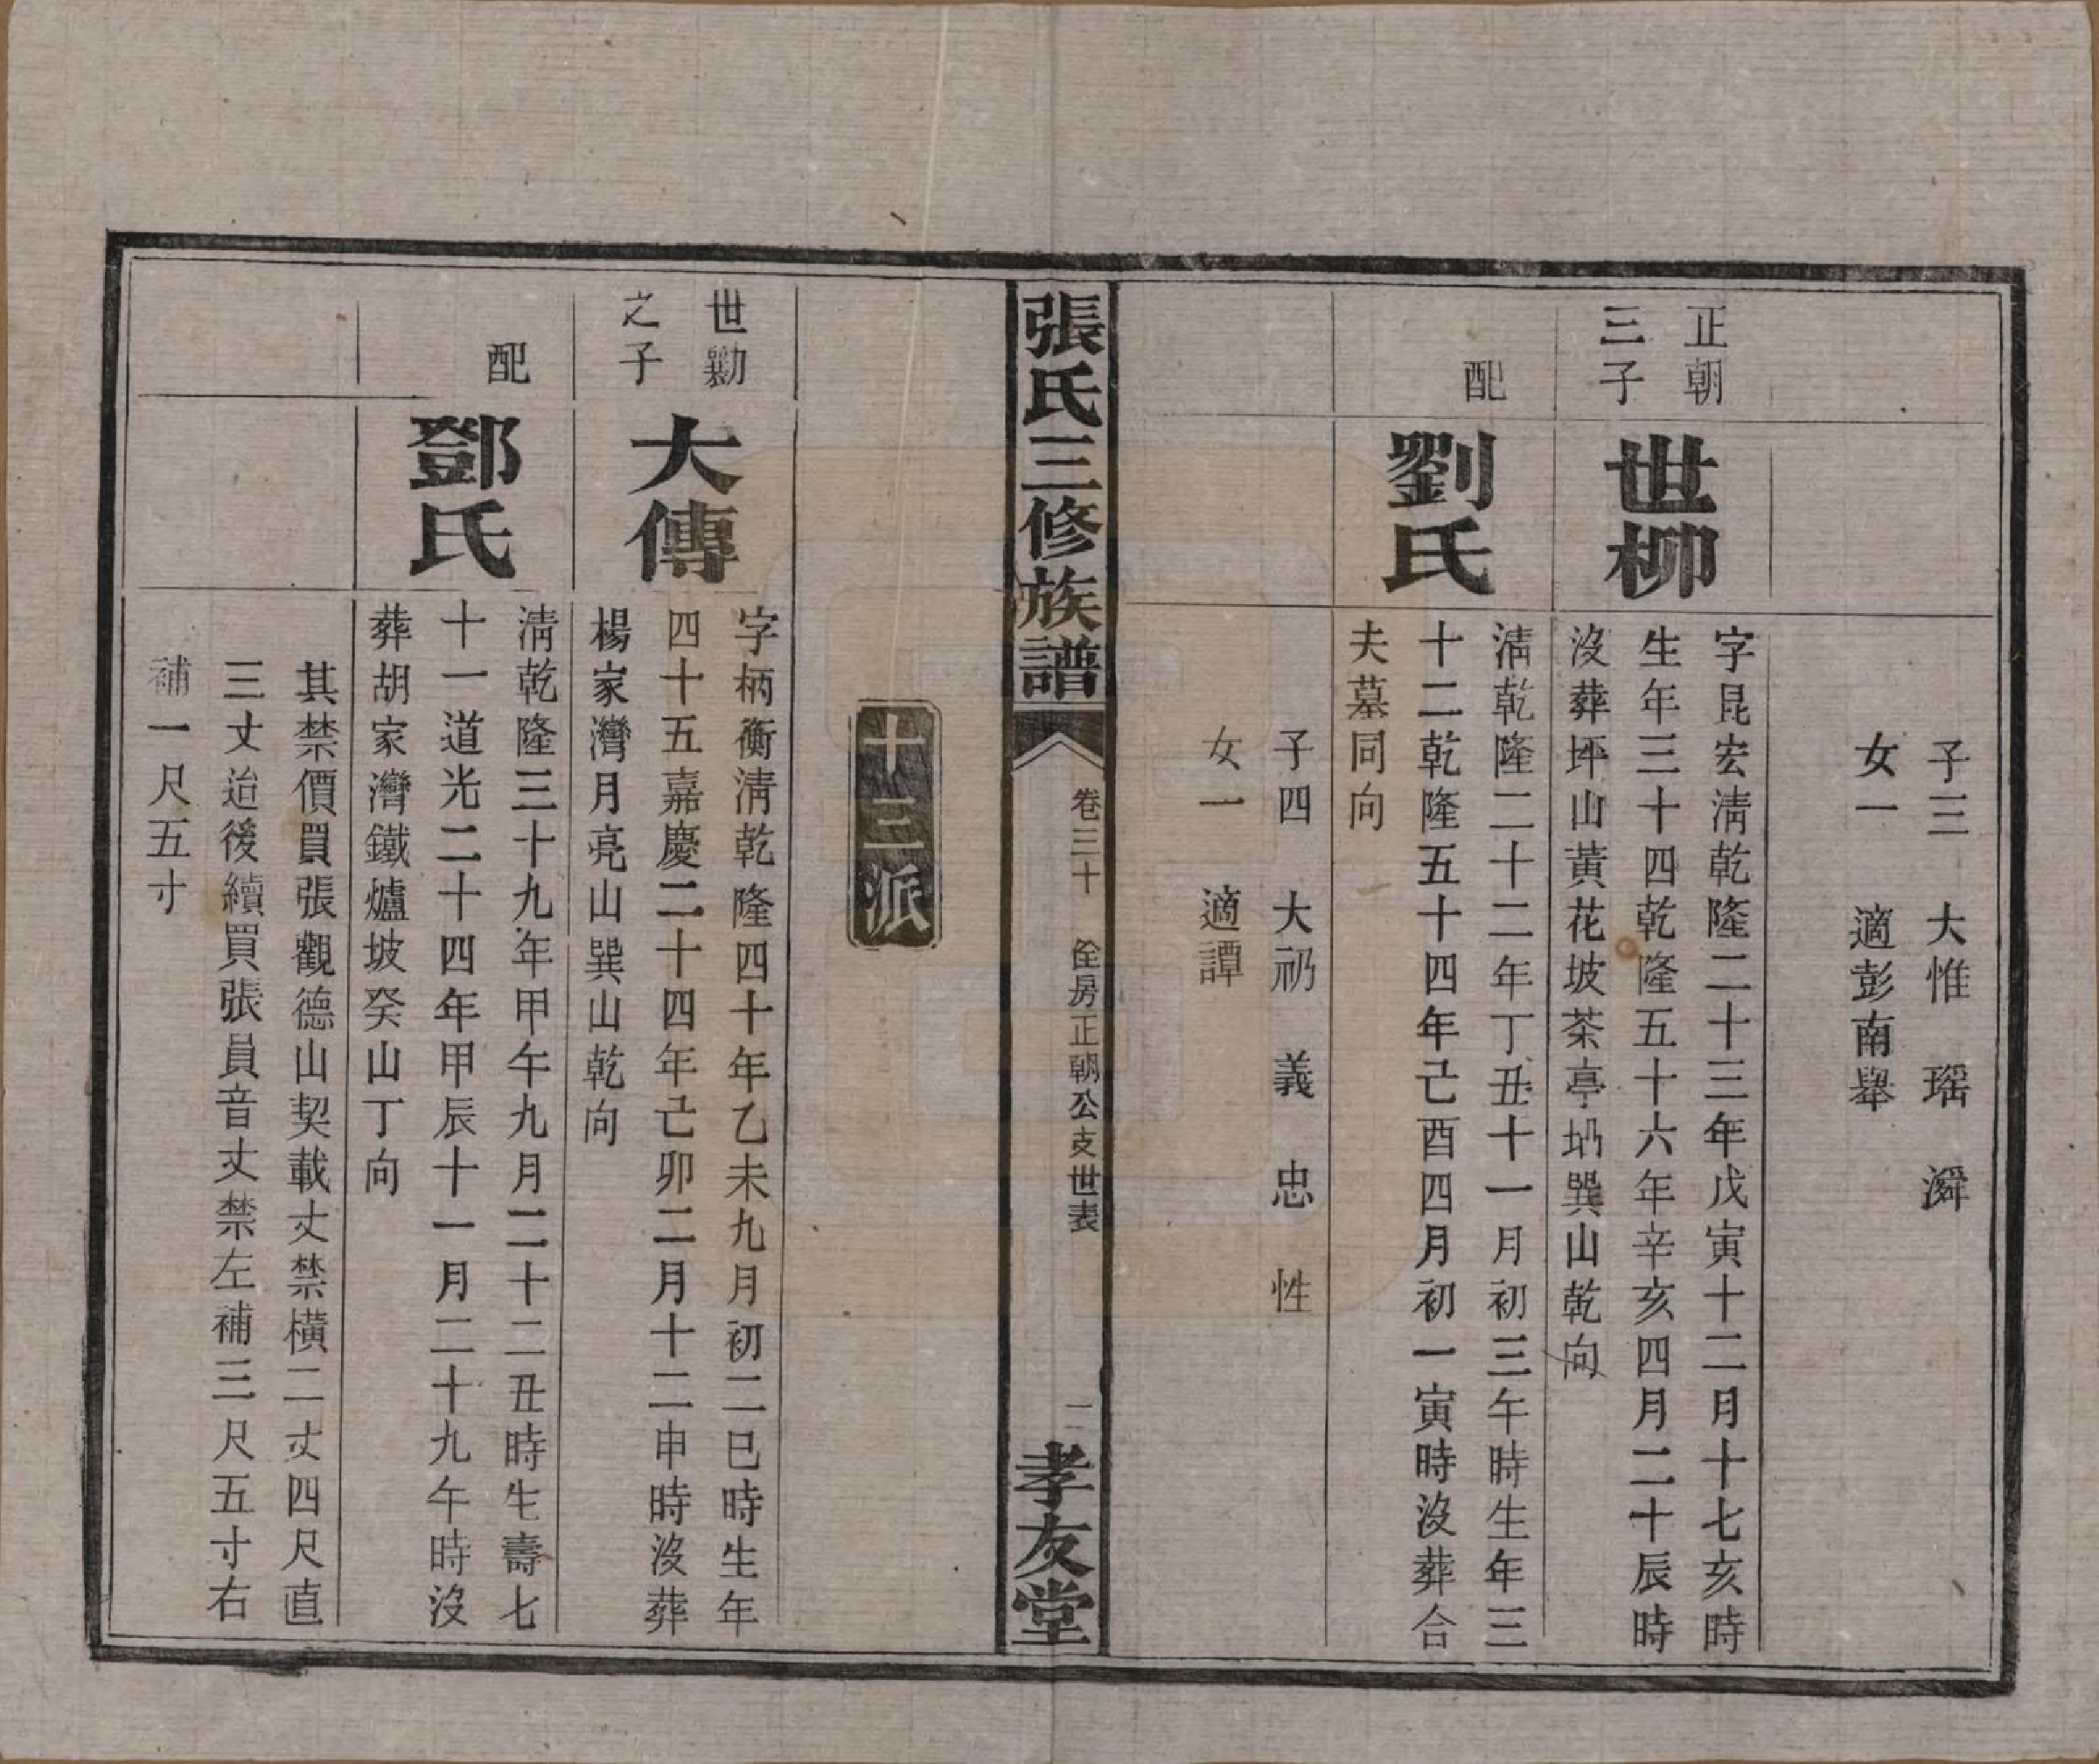 子三　大惟　瑶　潾
女一　適彭南舉
正朝
三子
世柳
字昆宏淸乾隆二十三年戊寅十二月十七亥時
生年三十四乾隆五十六年辛亥四月二十辰時
沒葬坪山黃花坡茶亭㘭巽山乾向
配
劉氏
淸乾隆二十二年丁丑十一月初三午時生年三
十二乾隆五十四年己酉四月初一寅時沒葬合
夫墓同向
子四　大礽　義　忠　性
女一　適譚
張氏三修族譜
卷三十　佺房正朝公支世表
二
孝友堂
十三派
世勷
之子
大傳
字柄衡淸乾隆四十年乙未九月初二巳時生年
四十五嘉慶二十四年己卯二月十二申時沒葬
楊家灣月亮山巽山乾向
配
鄧氏
淸乾隆三十九年甲午九月二十二丑時生壽七
十一道光二十四年甲辰十一月二十九午時沒
葬胡家灣鐵爐坡癸山丁向
其禁價買張觀德山契載丈禁橫二丈四尺直
三丈迨後續買張員音丈禁左補三尺五寸右
補一尺五寸